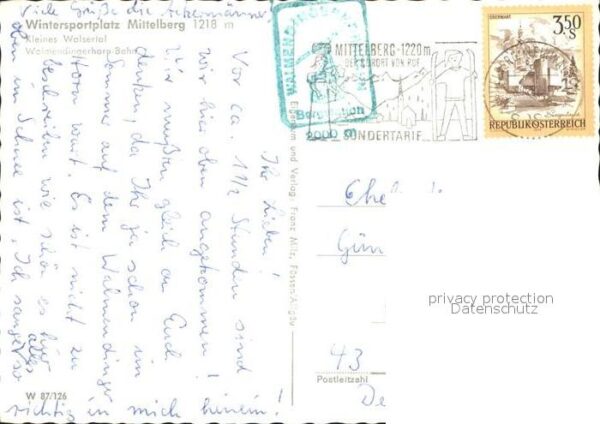 Viele Grüße die
Wintersportplatz Mittelberg 1218 m
Kleines Walsertal
Walmendingerhorn-Bahn
Ihr Lieben!
Vor ca. 1 1/2 Stunden sind
wir hier oben angekommen!
Wir mußten gleich an Euch
denken, da Ihr ja schon im
Sommer auf dem Walmendinger
Horn wart. Es ist nicht zu
beschreiben wie schön es hier
oben im Schnee ist. Ich sauge alles so
richtig in mich hinein!
W 87/126
Eigentum und Verlag: Franz Milz, Füssen/Allgäu
WALMENDINGERHORN
Bergstation
2000 m
MITTELBERG-1220m
DER KURORT VON RUF
SONDERTARIF
OBERWART
3,50 S
REPUBLIK ÖSTERREICH
Ehe
Gün
privacy protection
Datenschutz
43
Postleitzahl